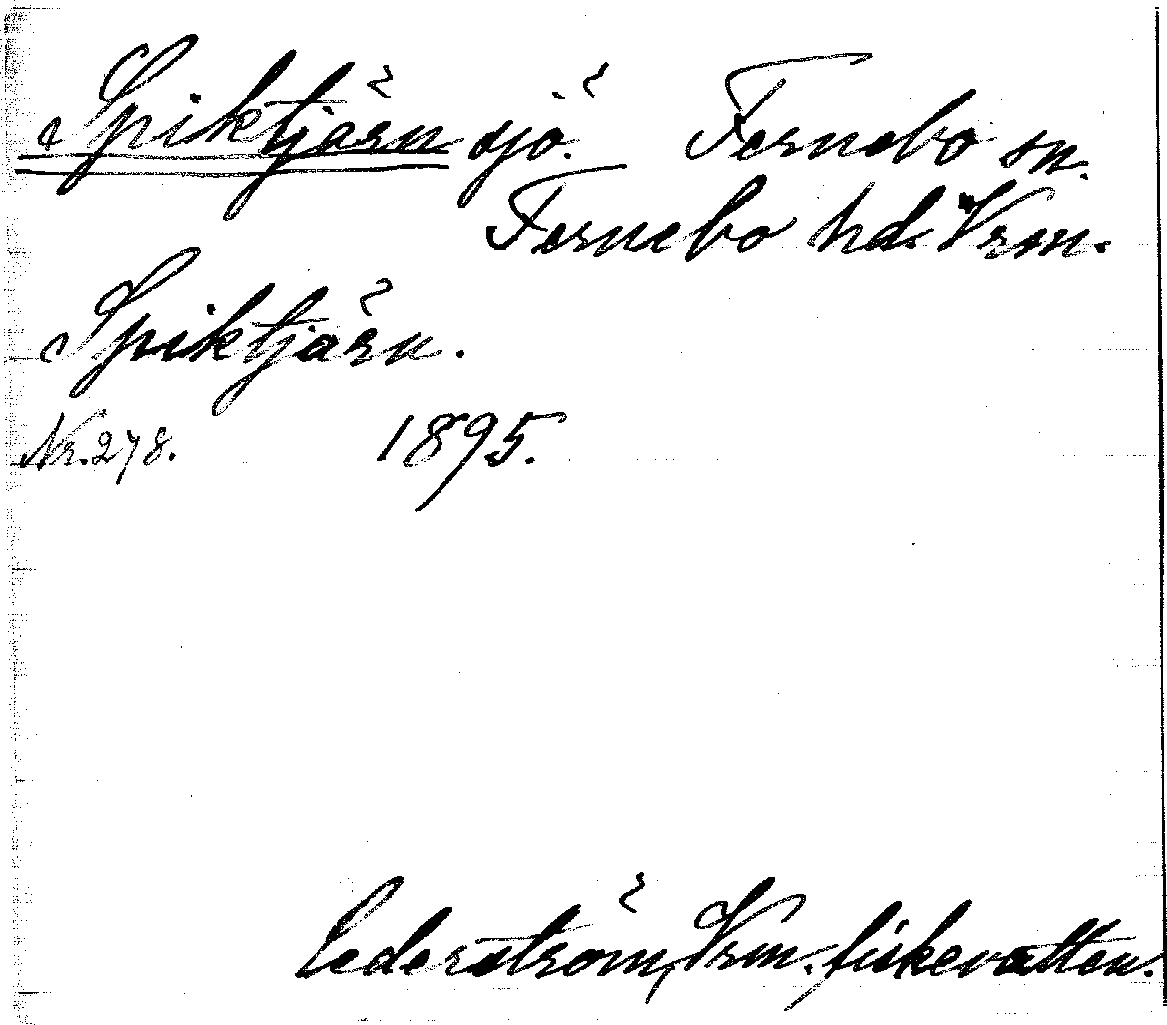 Spiktjärn sjö. Fernebo sn.
Fernebo hd. Vrm.
Spiktjärn.
Nr. 278. 1895.
Cederström, Vrm. fiskevatten.